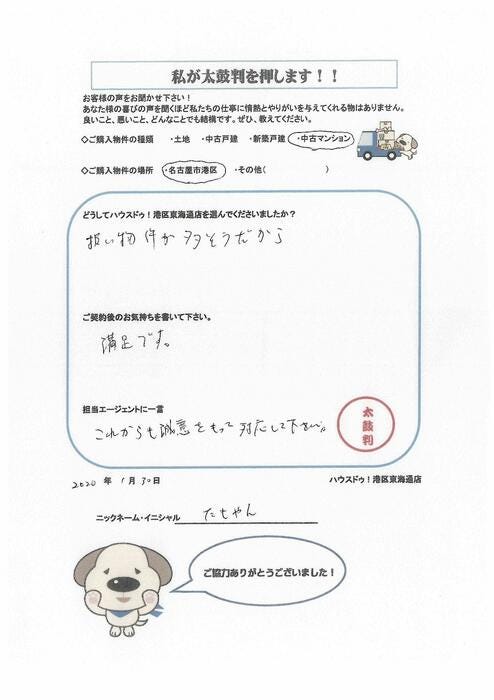 私が太鼓判を押します！！
お客様の声をお聞かせ下さい！
あなた様の喜びの声を聞くほど私たちの仕事に情熱とやりがいを与えてくれる物はありません。
良いこと、悪いこと、どんなことでも結構です。ぜひ、教えてください。
◇ご購入物件の種類　・土地　・中古戸建　・新築戸建　・中古マンション
◇ご購入物件の場所　・名古屋市港区　・その他（　　　　　　）
どうしてハウスドゥ！港区東海通店を選んでくださいましたか？
扱い物件が多そうだから
ご契約後のお気持ちを書いて下さい。
満足です。
担当エージェントに一言
これからも誠意をもって対応して下さい。
太鼓判
2020 年 1月 30日　ハウスドゥ！港区東海通店
ニックネーム・イニシャル　たちやん
ご協力ありがとうございました！